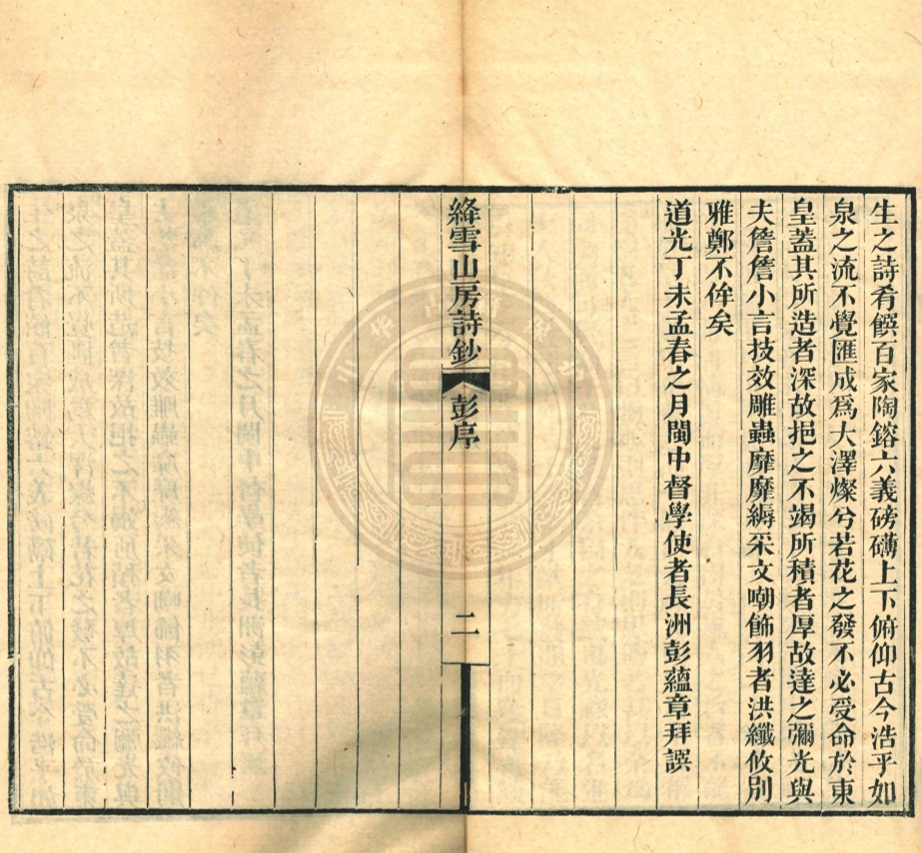 生之詩肴饌百家陶鎔六義磅礴上下俯仰古今浩乎如
泉之流不覺匯成爲大澤燦兮若花之發不必受命於東
皇蓋其所造者深故挹之不竭所積者厚故達之彌光與
夫詹詹小言技效雕蟲靡靡縟采文嘲飾羽者洪纖攸別
雅鄭不侔矣
道光丁未孟春之月閩中督學使者長洲彭蘊章拜譔
絳雪山房詩鈔 彭序
二